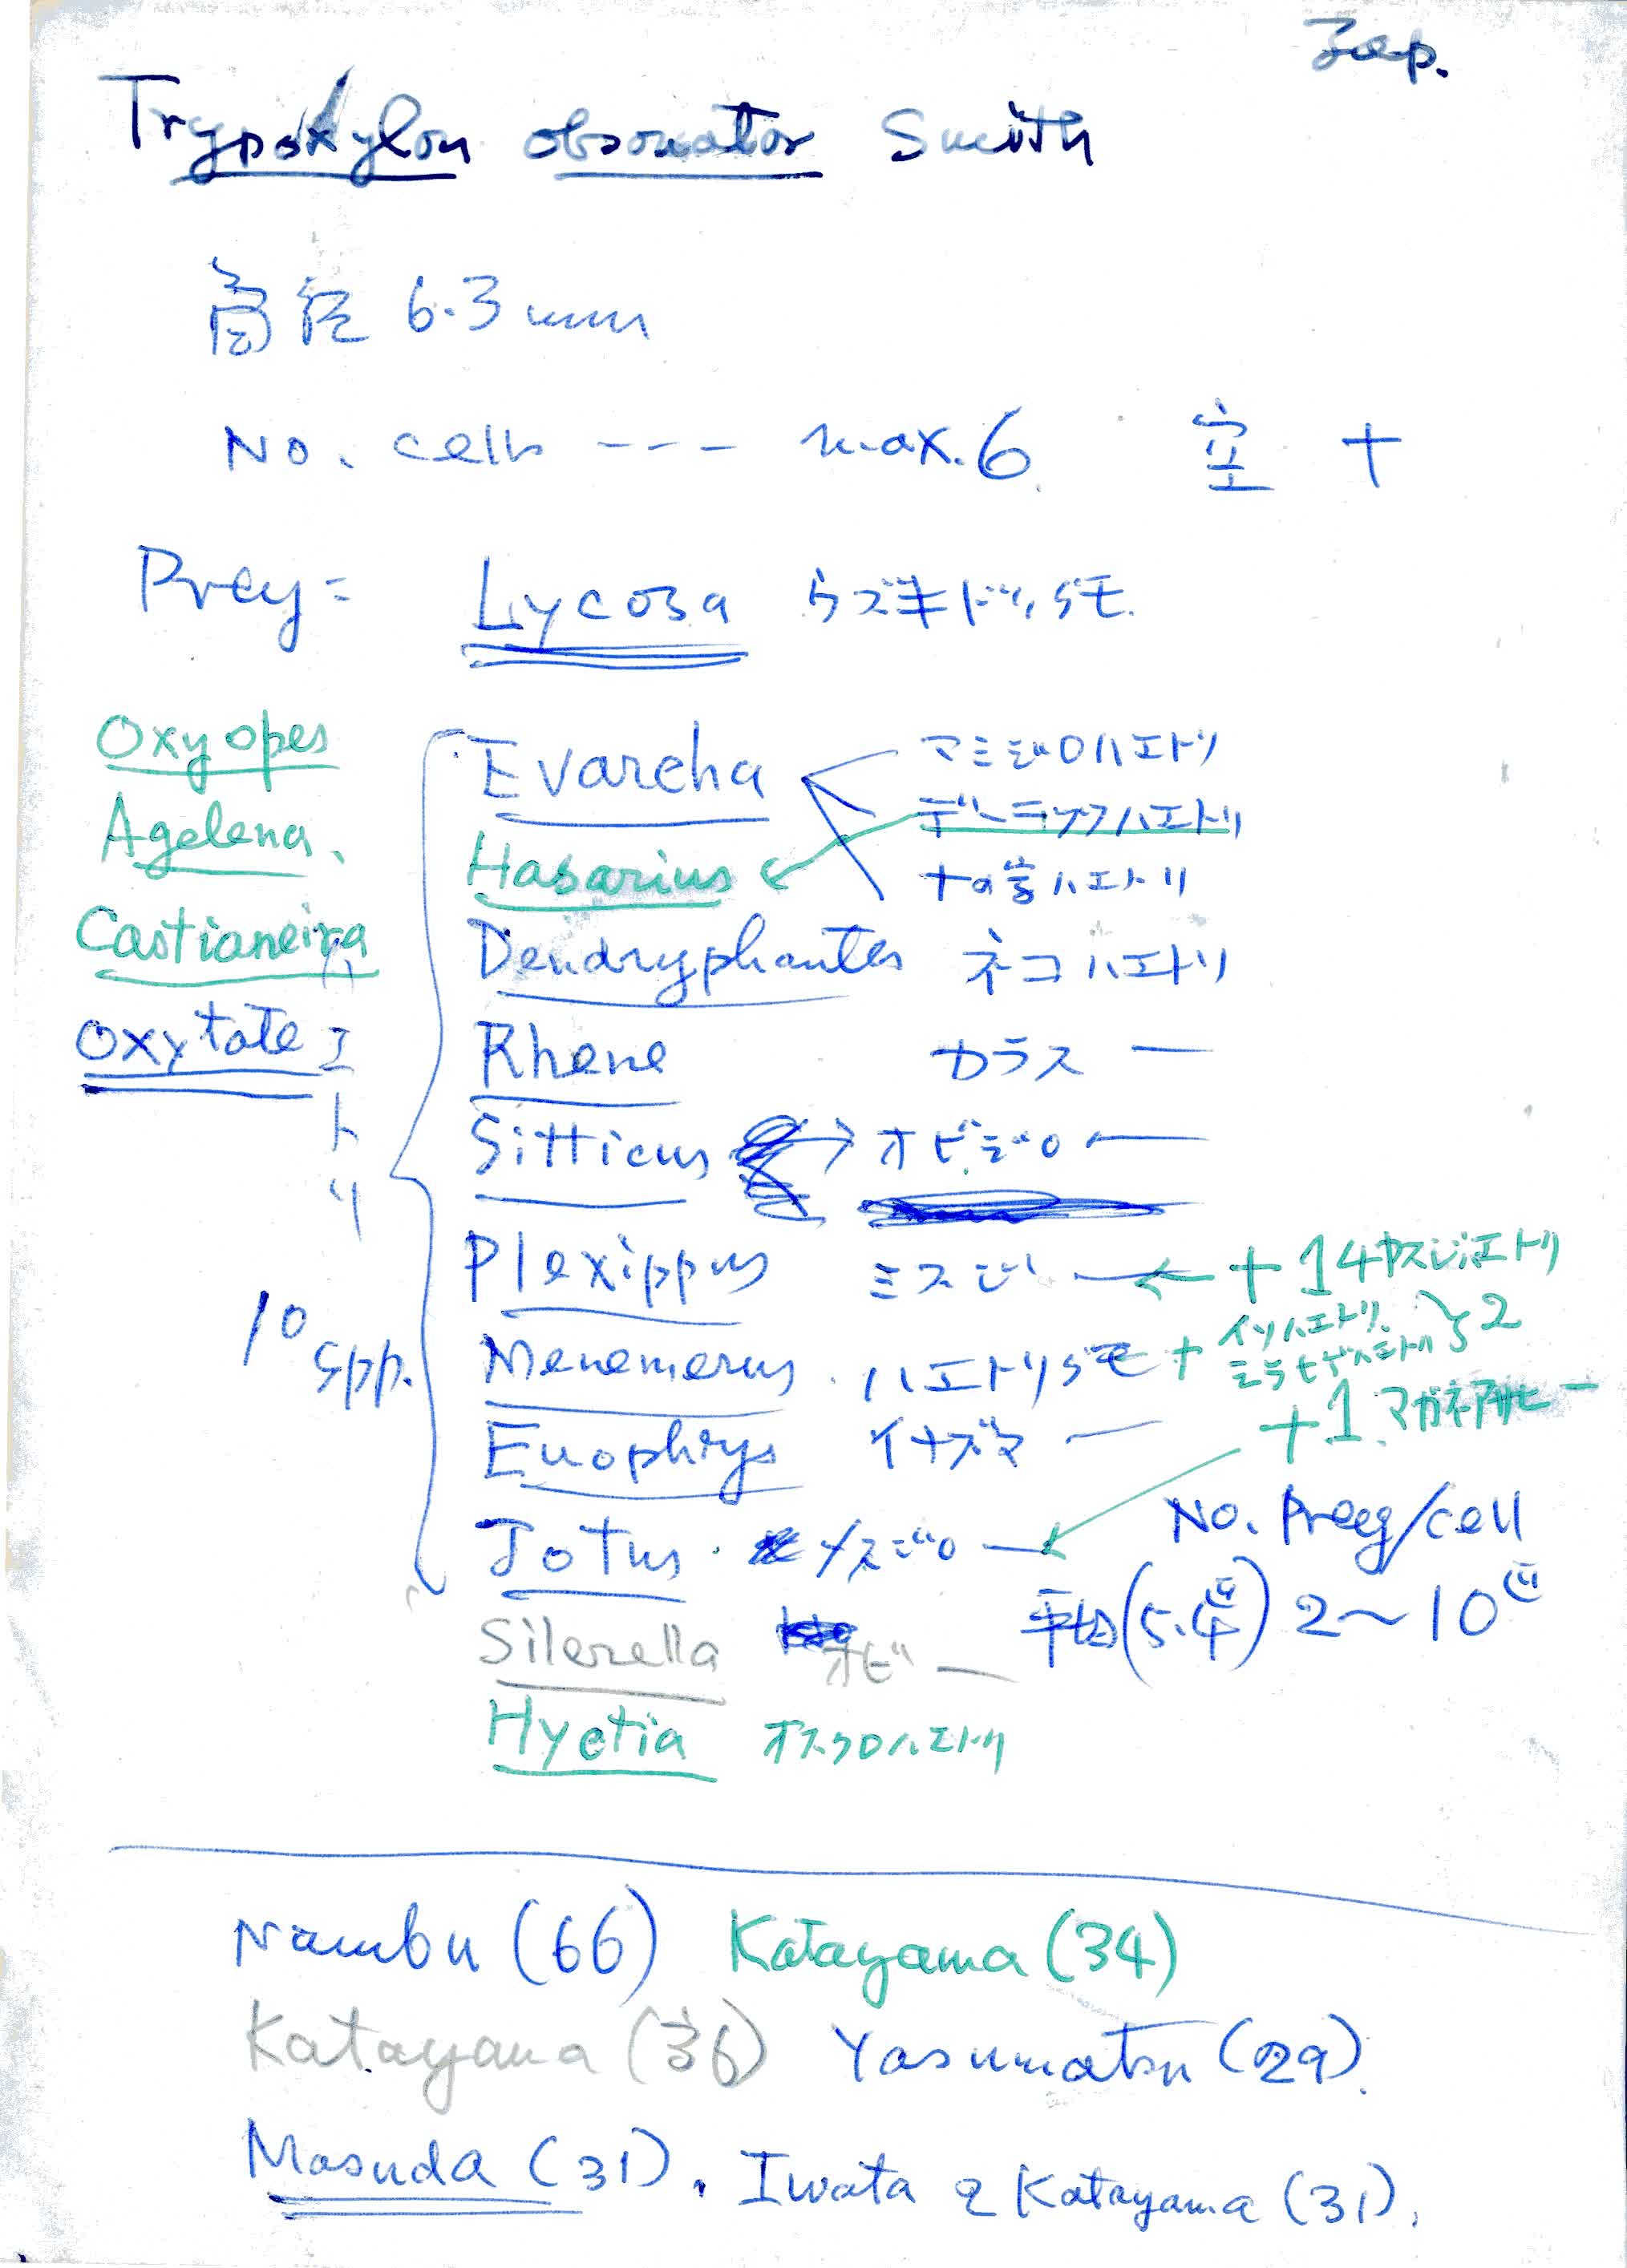 Jap.
Trypoxylon obsonator Smith
筒径 6.3mm
No. cells --- max.6 空 +
Prey= Lycosa ウズキドクグモ.
Oxyopes
Agelena.
Castianeira
Oxytate
ハエトリ
10 spp.
Evarcha マミジロハエトリ
デーニッツハエトリ
Hasarius
十の字ハエトリ
Dendryphantes ネコハエトリ
Rhene カラス —
Sitticus → オビジロ —
Plexippus ミスジ — ← +1 チャスジハエトリ
Menemerus ハエトリグモ + イソハエトリ
シラヒゲハエトリ } 2
Euophrys イナズマ —
+1. マガネアサヒ —
Jotus. メスジロ —
No. Prey/cell
平均(5.4) 2~10
Silerella オビ —
Hyctia オスクロハエトリ
Nambu (66) Katayama (34)
Katayama (36) Yasumatsu (29).
Masuda (31). Iwata & Katayama (31).